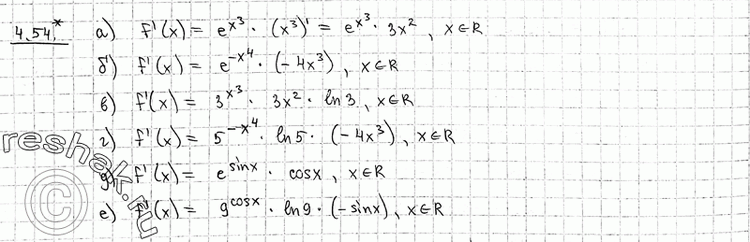 4.54.* а) f'(x) = e^{x^3} · (x^3)' = e^{x^3} · 3x^2, x∈R
б) f'(x) = e^{-x^4} · (-4x^3), x∈R
в) f'(x) = 3^{x^3} · 3x^2 · ln 3, x∈R
г) f'(x) = 5^{-x^4} · ln 5 · (-4x^3), x∈R
д) f'(x) = e^{sinx} · cosx, x∈R
е) f'(x) = 9^{cosx} · ln 9 · (-sinx), x∈R
reshak.ru
©